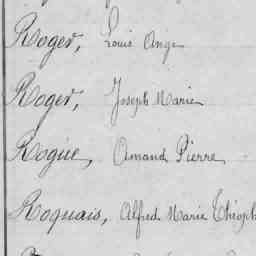 Roger, Louis Ange
Roger, Joseph Marie
Rogue, Amand Pierre
Roquais, Alfred Marie Théoph